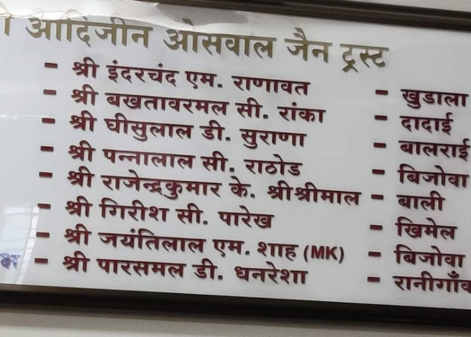 आदिजीन ओसवाल जैन ट्रस्ट
- श्री इंदरचंद एम. राणावत - खुडाला
- श्री बखतावरमल सी. रांका - दादाई
- श्री घीसुलाल डी. सुराणा - बालराई
- श्री पन्नालाल सी. राठोड - बिजोवा
- श्री राजेन्द्रकुमार के. श्रीश्रीमाल - बाली
- श्री गिरीश सी. पारेख - खिमेल
- श्री जयंतिलाल एम. शाह (MK) - बिजोवा
- श्री पारसमल डी. धनरेशा - रानीगाँव